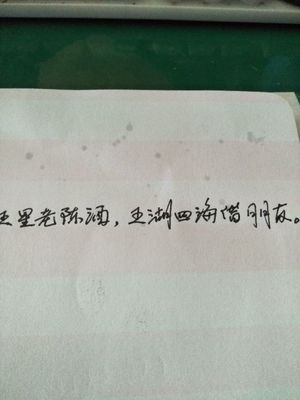 五里老陈酒，五湖四海偕朋友。